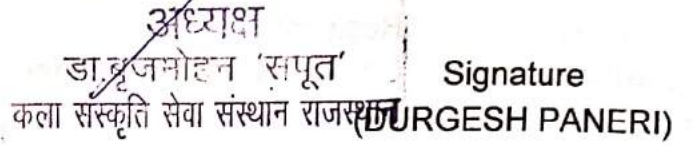 अध्यक्ष
डा.बृजमोहन 'सपूत'
कला संस्कृति सेवा संस्थान राजस्थान
Signature
(DURGESH PANERI)